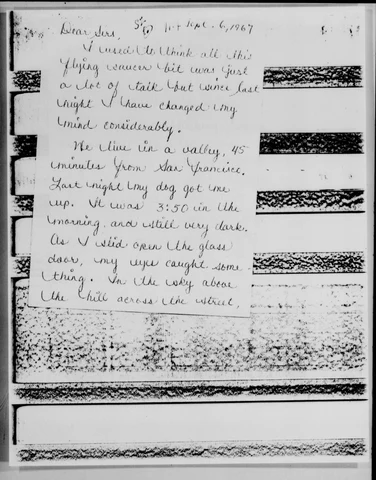 Sept. 6, 1967
Dear Sirs,
I used to think all this
flying saucer bit was just
a lot of talk but since last
night I have changed my
mind considerably.
We live in a valley, 45
minutes from San Francisco.
Last night my dog got me
up. It was 3:50 in the
morning and still very dark.
As I slid open the glass
door, my eyes caught some
thing. In the sky above
the hill across the street,